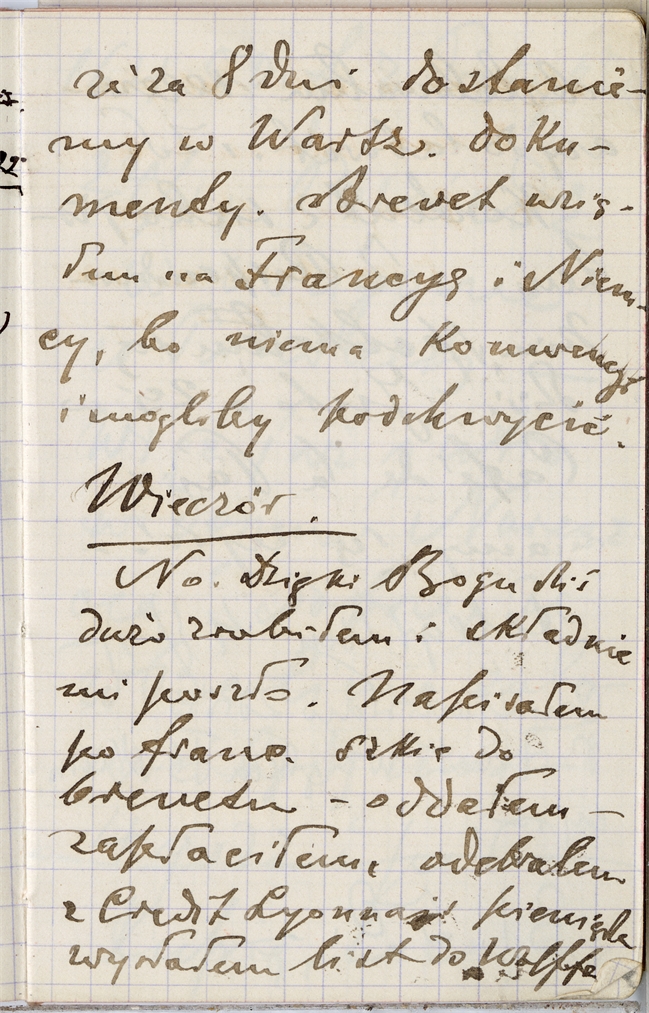 że za 8 dni dostanie-
my w Warsz. doku-
menty. Brevet wzią-
łem na Francyę i Niem-
cy, bo niema konwencyi
i mogliby podchwycić.
Wieczór.
No. Dzięki Bogu dziś
dużo zrobiłem i składnie
mi poszło. Napisałem
po franc. szkic do
brevetu – oddałem –
zapłaciłem, odebrałem
z Credit Lyonnais pieniądze
wysłałem list do Wolffa